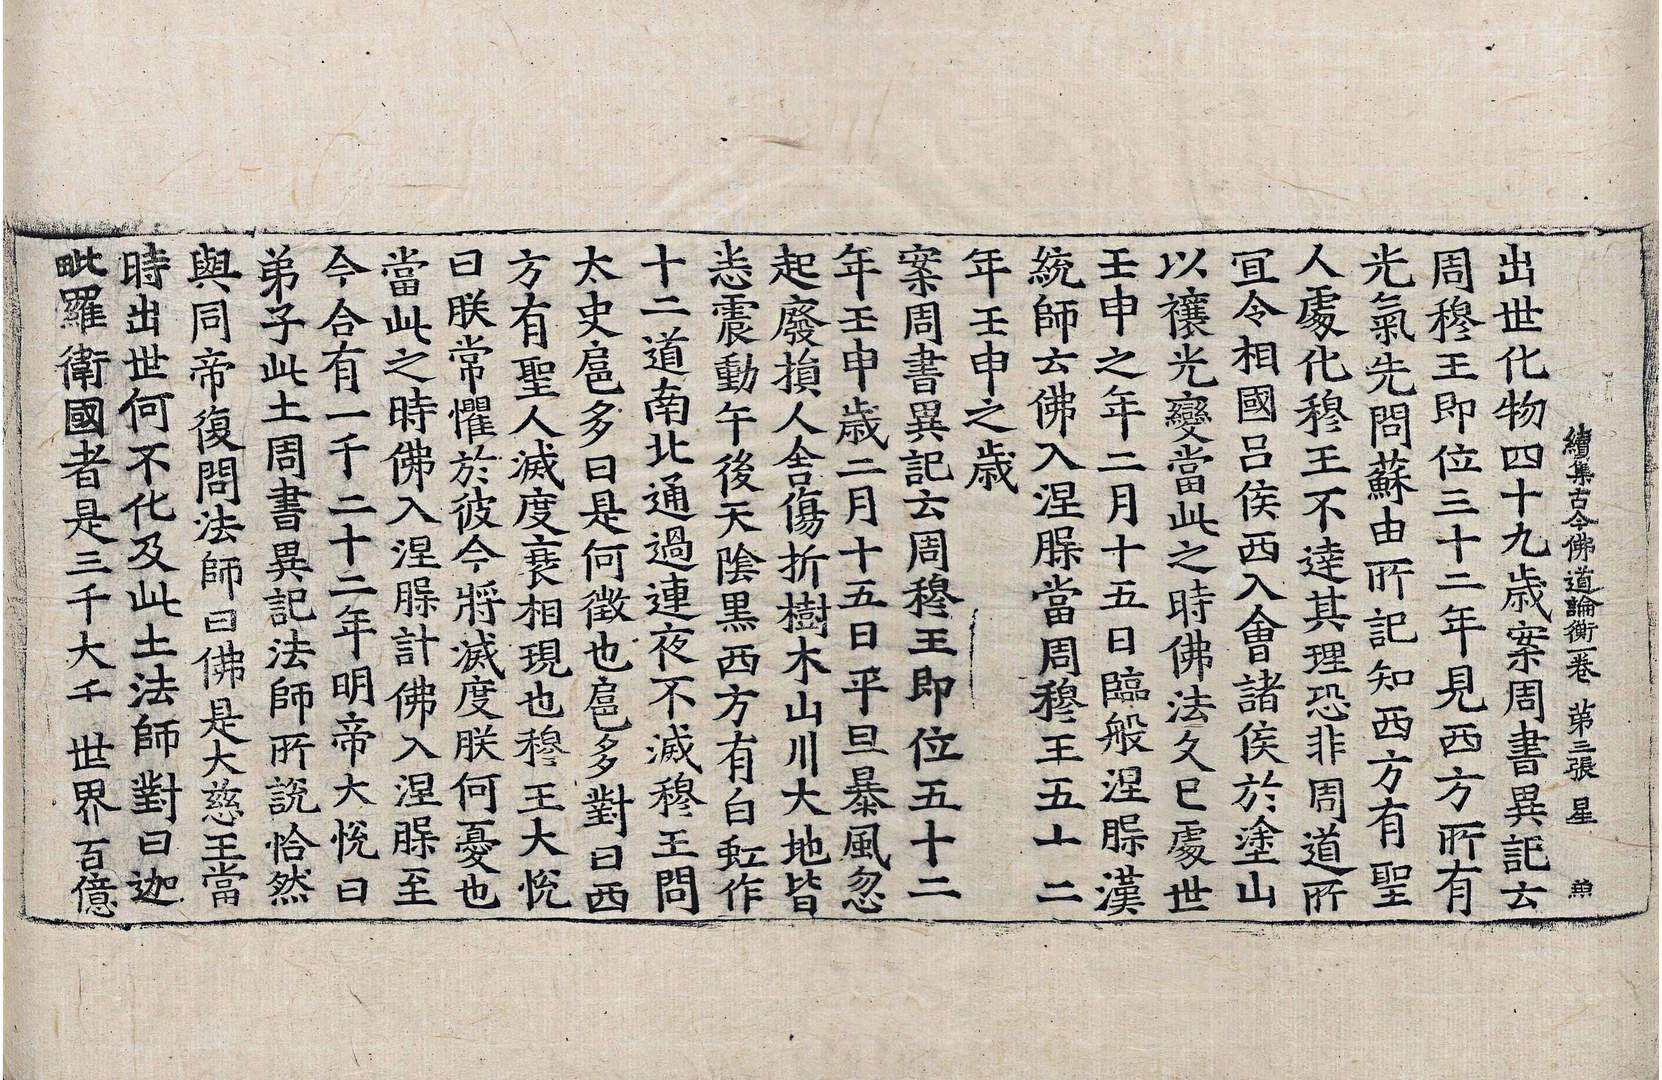 續集古今佛道論衡一卷 第三張 星
出世化物四十九歲案周書異記云
周穆王即位三十二年見西方所有
光氣先問蘇由所記知西方有聖
人處化穆王不達其理恐非周道所
冝令相國呂侯西入會諸侯於塗山
以禳光變當此之時佛法久已處世
壬申之年二月十五日臨般涅槃漢
統師云佛入涅槃當周穆王五十二
年壬申之歲
案周書異記云周穆王即位五十二
年壬申歲二月十五日平旦暴風忽
起廢損人舍傷折樹木山川大地皆
悉震動午後天陰黑西方有白虹作
十二道南北通過連夜不滅穆王問
太史扈多曰是何徵也扈多對曰西
方有聖人滅度衰相現也穆王大悅
曰朕常懼於彼今將滅度朕何憂也
當此之時佛入涅槃計佛入涅槃至
今合有一千二十二年明帝大悅曰
弟子此土周書異記法師所說恰然
與同帝復問法師曰佛是大慈王當
時出世何不化及此土法師對曰迦
毗羅衛國者是三千大千世界百億